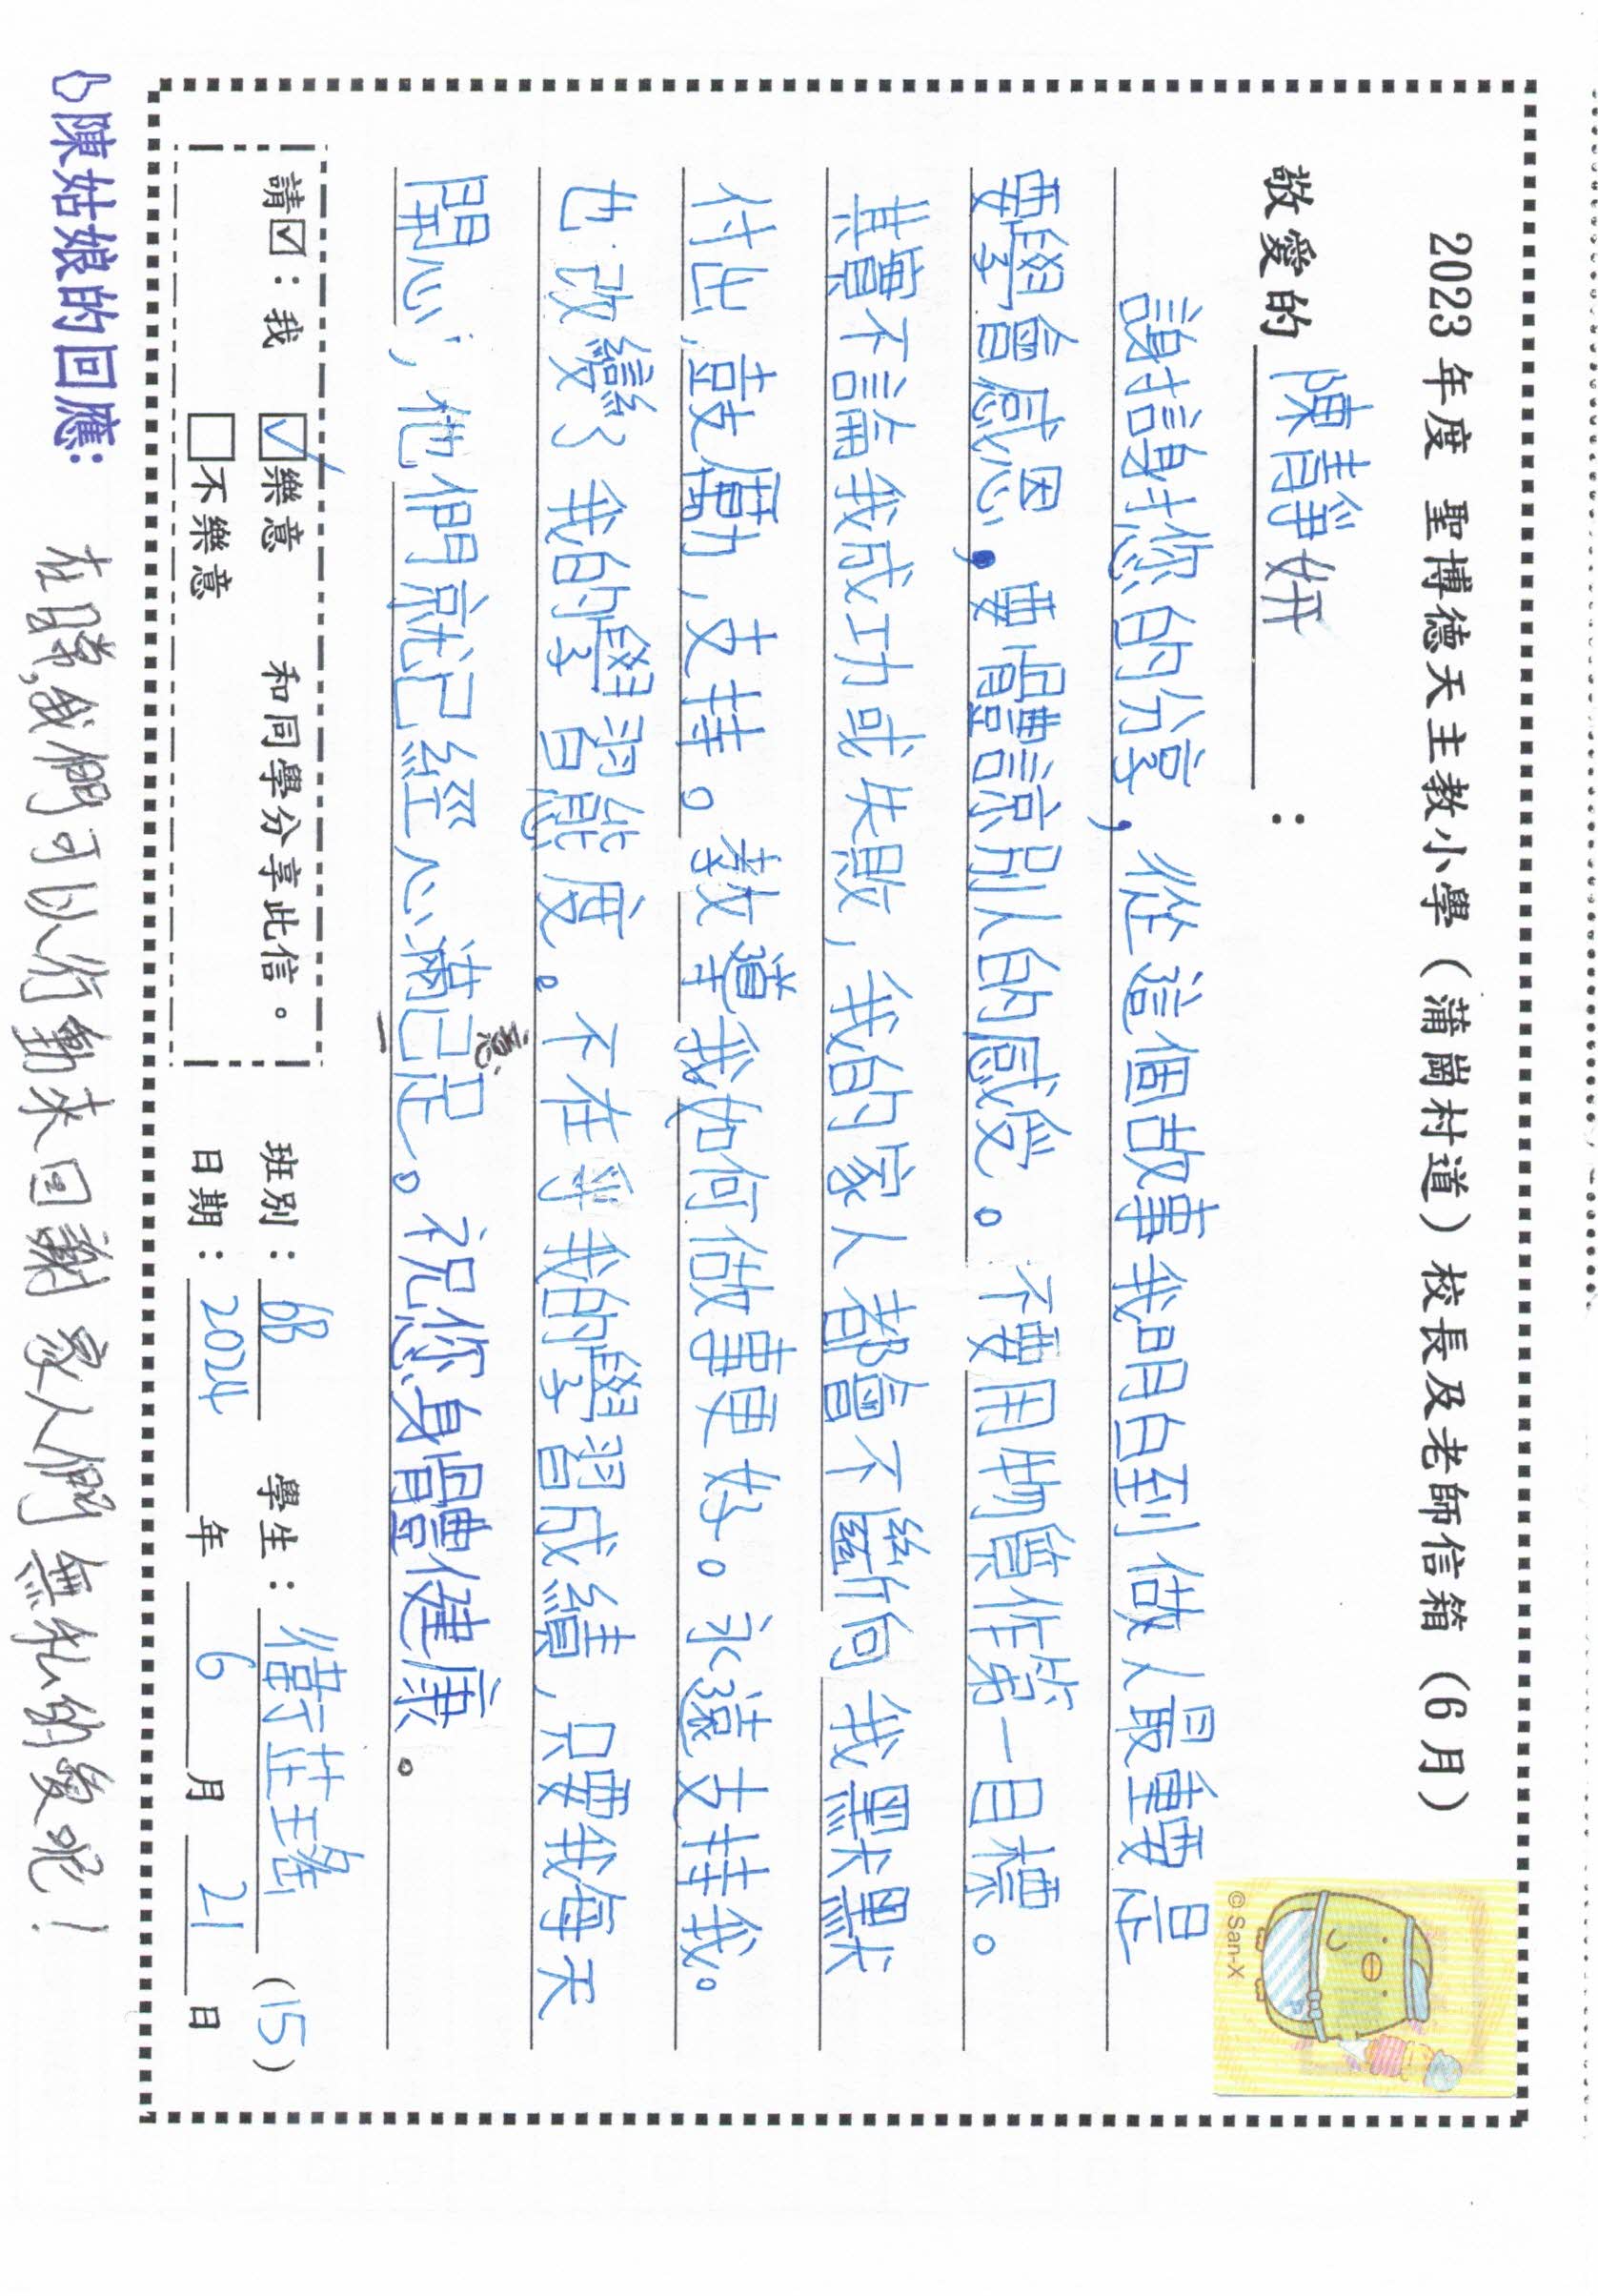 2023 年度 聖博德天主教小學（蒲崗村道）校長及老師信箱（6 月）
敬愛的 陳靜妍 ：
謝謝您的分享，從這個故事我明白到做人最重要是
要學會感恩，要體諒別人的感受。不要用物質作第一目標。
其實不論我成功或失敗，我的家人都會不斷向我默默
付出，鼓勵，支持。教導我如何做事更好。永遠支持我。
也改變了我的學習態度。不在乎我的學習成績，只要我每天
開心，他們就已經心滿已足。祝您身體健康。
意
© San-X
請☑：我 ☑樂意 和同學分享此信。
□不樂意
班別：6B 學生：衞芷瑤 (15)
日期：2024 年 6 月 21 日
陳姑娘的回應：
在日常，我們可以行動來回謝家人們無私的愛呢！